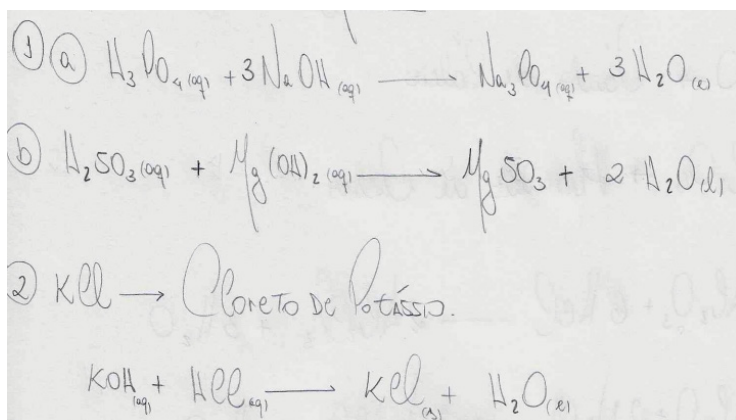 1 a H₃PO₄(aq) + 3NaOH(aq) → Na₃PO₄(aq) + 3H₂O(l)
b H₂SO₃(aq) + Mg(OH)₂(aq) → MgSO₃ + 2 H₂O(l)
2 KCl → Cloreto de Potássio.
KOH(aq) + HCl(aq) → KCl(s) + H₂O(l)